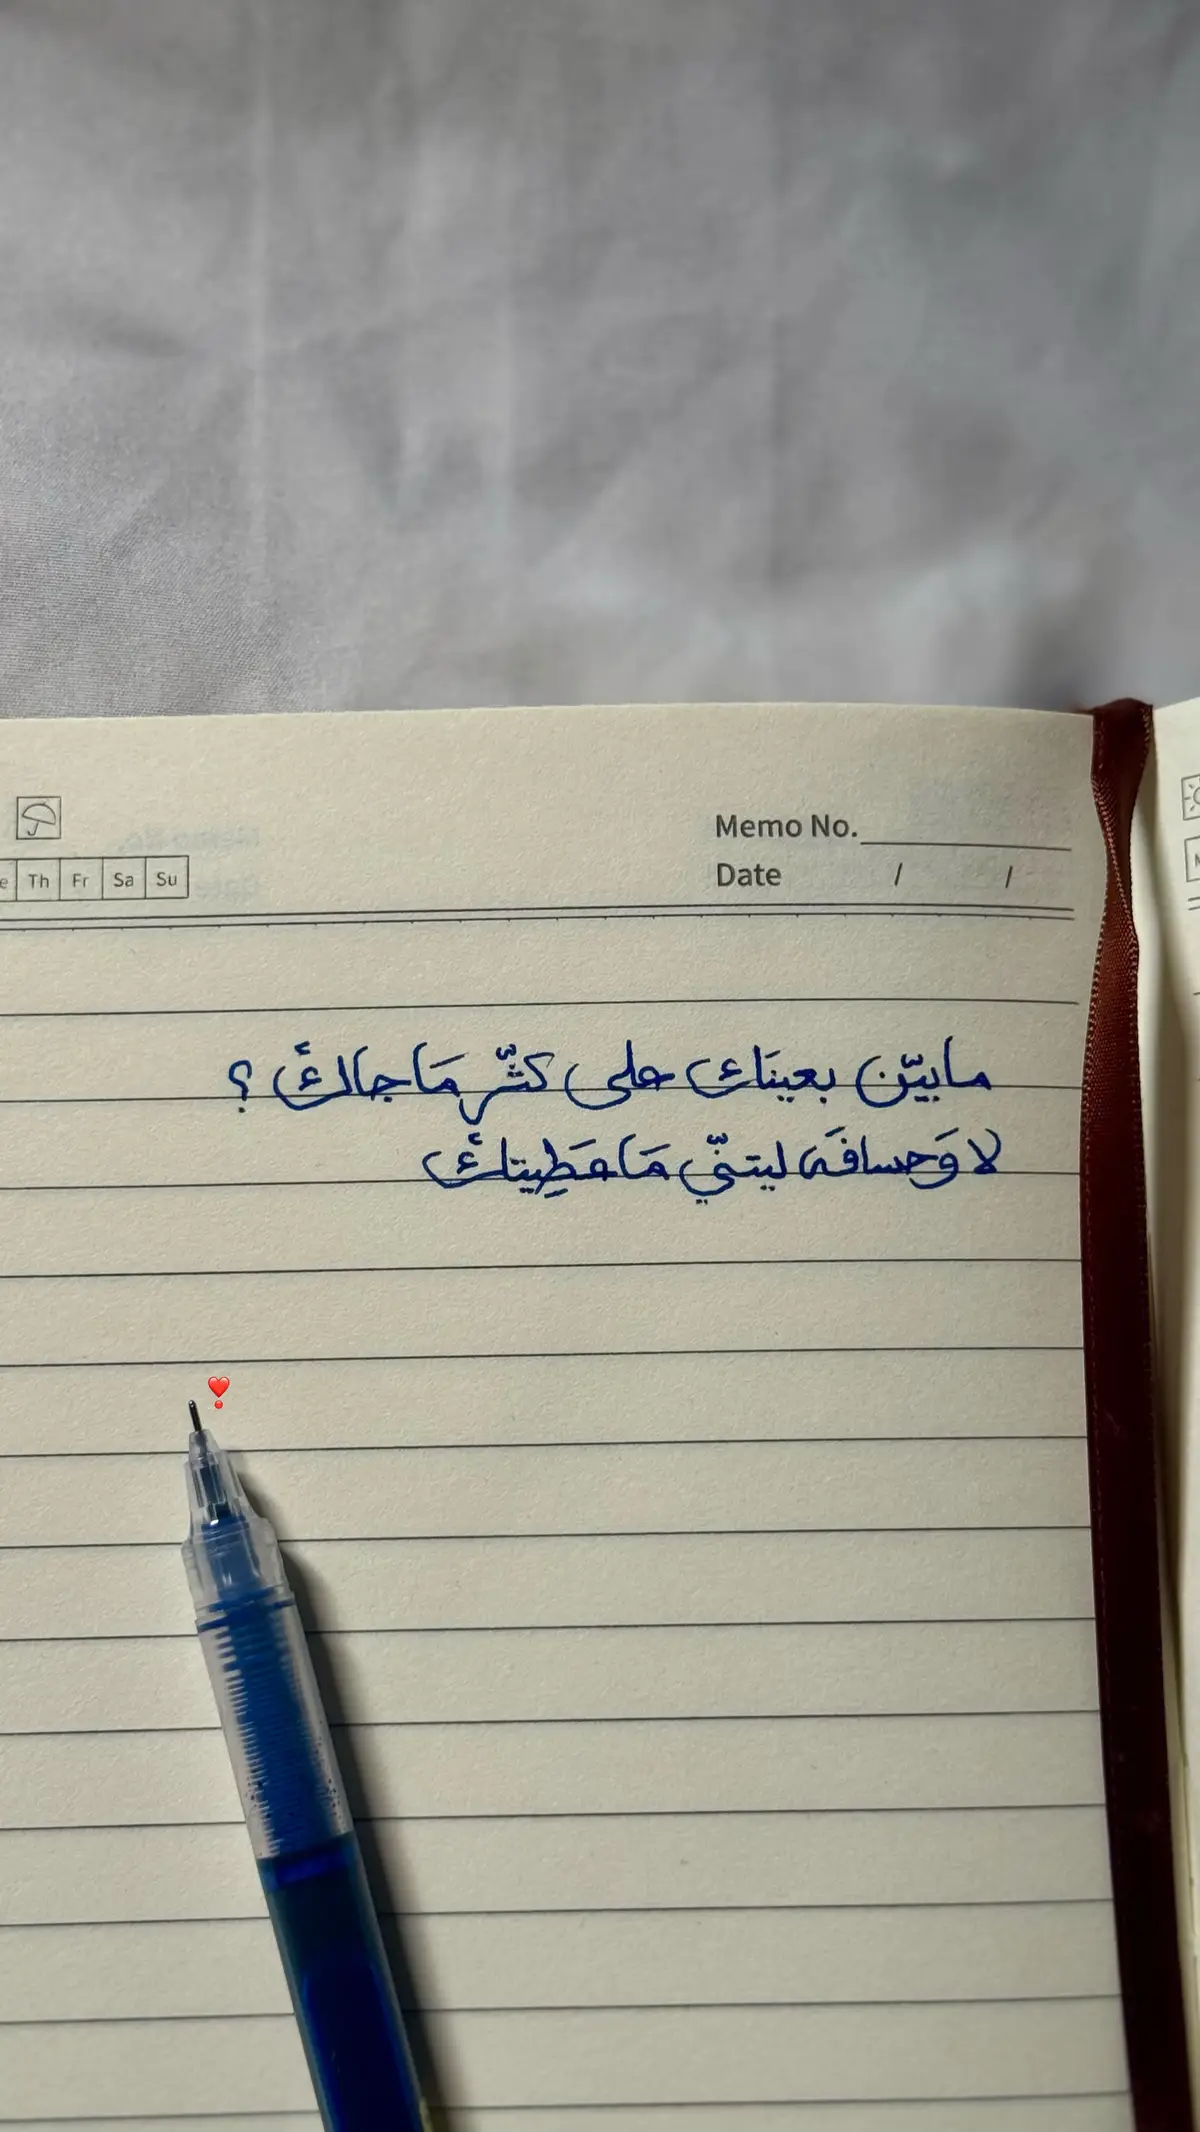 Memo No.
Date / /
e Th Fr Sa Su
مابيّن بعينَك على كثّر مَا جاكَ ؟
لا وَحسافَه ليتنّي مَا عَطِيتكَ